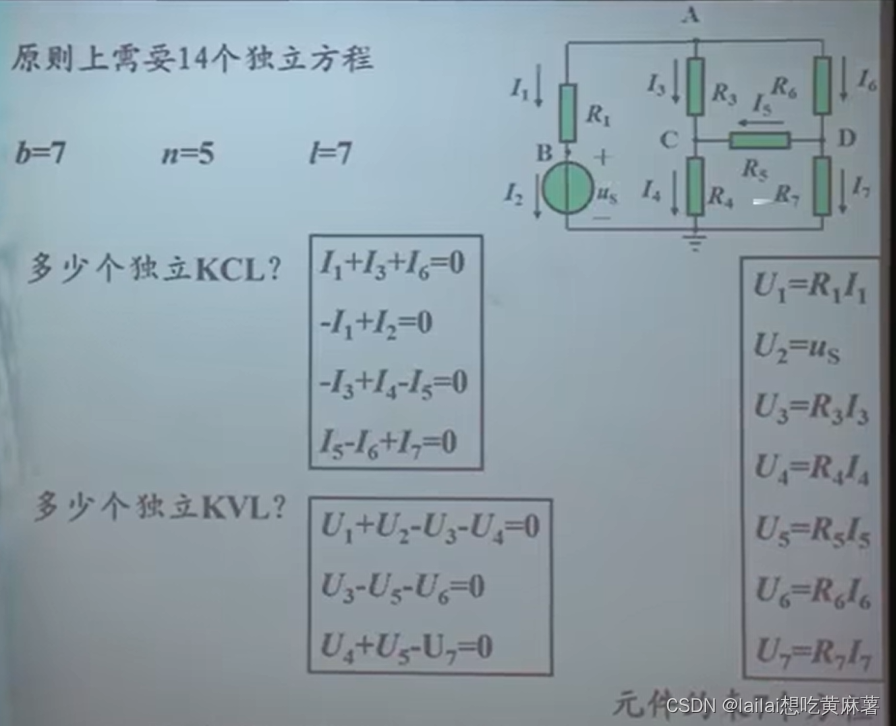 原则上需要14个独立方程
b=7 n=5 l=7
A
I₁
R₁
I₃
R₃
R₆
I₆
I₅
B
+
C
D
R₅
I₂
uₛ
−
I₄
R₄
R₇
I₇
多少个独立KCL?
I₁+I₃+I₆=0
-I₁+I₂=0
-I₃+I₄-I₅=0
I₅-I₆+I₇=0
多少个独立KVL?
U₁+U₂-U₃-U₄=0
U₃-U₅-U₆=0
U₄+U₅-U₇=0
U₁=R₁I₁
U₂=uₛ
U₃=R₃I₃
U₄=R₄I₄
U₅=R₅I₅
U₆=R₆I₆
U₇=R₇I₇
元件
CSDN @lailai想吃黄麻薯